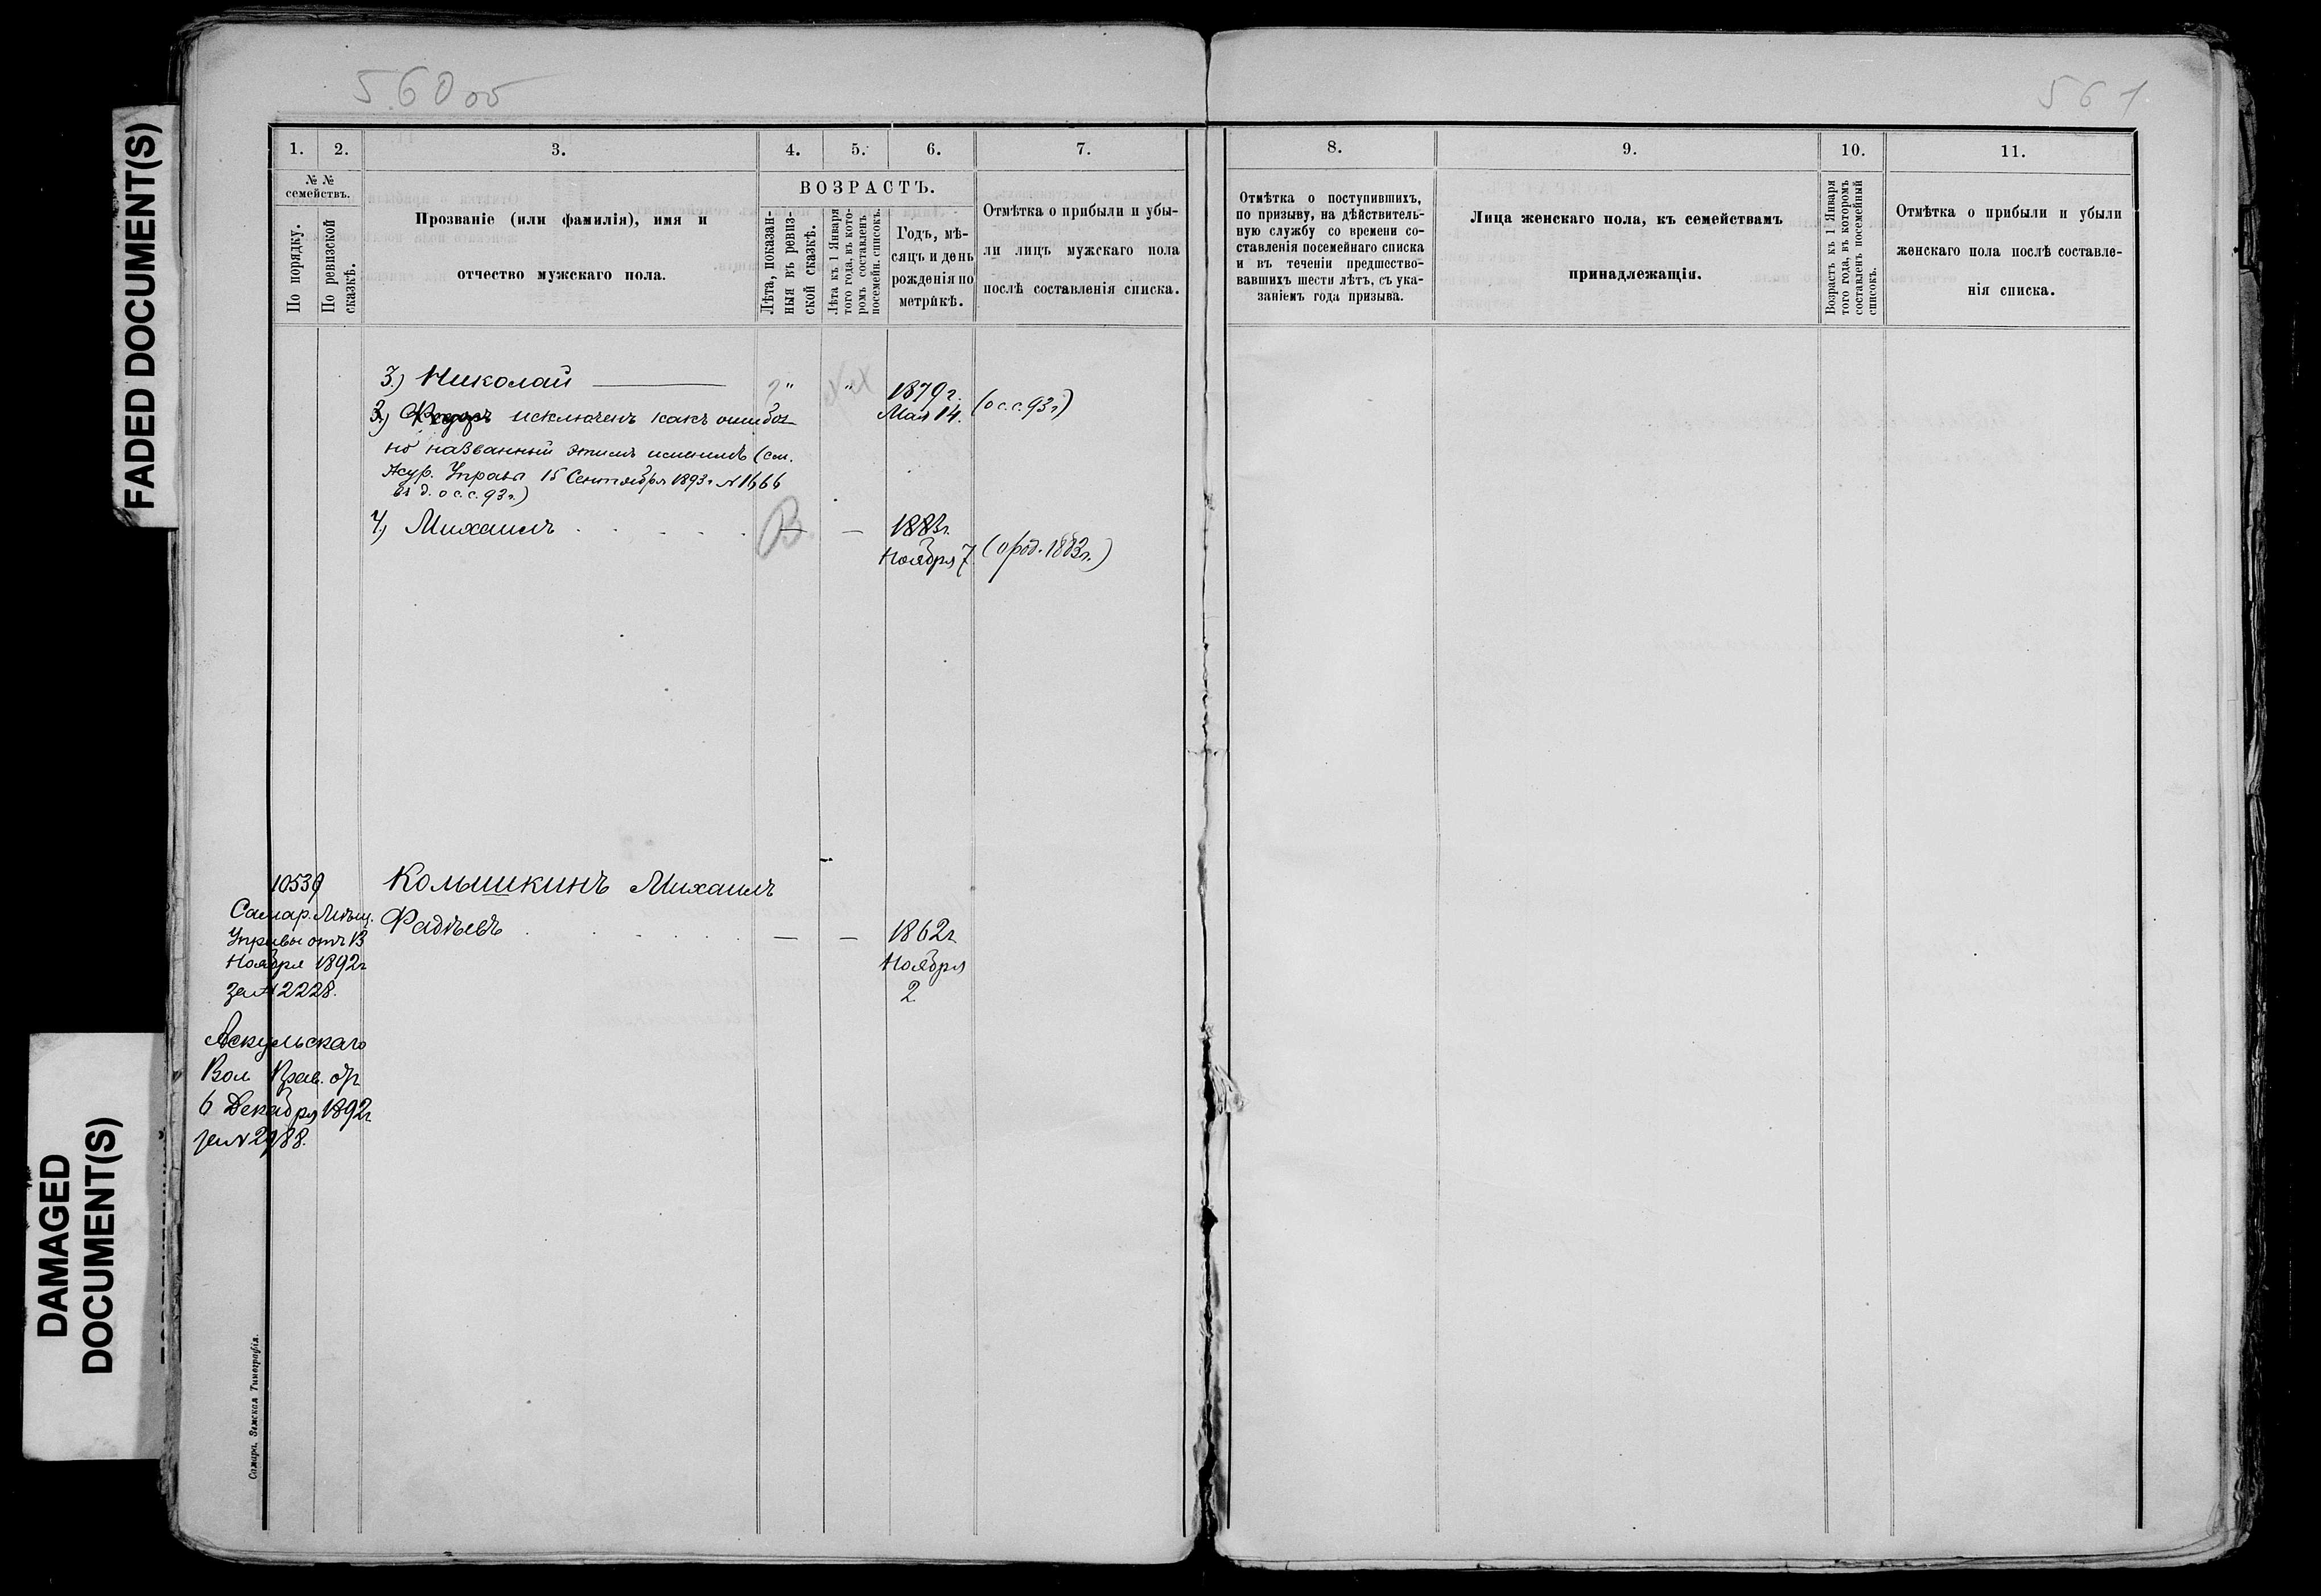 560 об
561
FADED DOCUMENT(S)
DAMAGED
DOCUMENT(S)
1.
2.
3.
4.
5.
6.
7.
№ №
семействъ.
По порядку.
По ревизской
сказкѣ.
Прозваніе (или фамилія), имя и
отчество мужскаго пола.
ВОЗРАСТЪ.
Лѣта, показан-
ныя въ ревиз-
ской сказкѣ.
Лѣта къ 1 Января
того года, въ кото-
ромъ составленъ
посемейн. списокъ.
Годъ, мѣ-
сяцъ и день
рожденія по
метрикѣ.
Отмѣтка о прибыли и убы-
ли лицъ мужскаго пола
послѣ составленія списка.
8.
9.
10.
11.
Отмѣтка о поступившихъ,
по призыву, на дѣйствитель-
ную службу со времени со-
ставленія посемейнаго списка
и въ теченіи предшество-
вавшихъ шести лѣтъ, съ ука-
заніемъ года призыва.
Лица женскаго пола, къ семействамъ
принадлежащія.
Возрастъ къ 1 Января
того года, въ которомъ
составленъ посемейный
списокъ.
Отмѣтка о прибыли и убыли
женскаго пола послѣ составле-
нія списка.
3.) Николай — " " 1879 г.
Мая 14. (о с.с. 93 г)
3.) Федоръ исключенъ какъ ошибоч-
но названный этимъ именемъ (см.
Жур. Управы 15 Сентября 1893 г № 1666
въ д. о с.с. 93 г.)
4.) Михаилъ . . . . . — — 1883 г.
Ноября 7 (о род. 1883 г.)
10539
Колышкинъ Михаилъ
Фадѣевъ . . . . — — 1862 г
Ноября
2
Самар. Мѣщ.
Управы отъ 13
Ноября 1892 г
за № 2228.
Аскульскаго
Вол Прав. отъ
6 Декабря 1892 г
за № 2988.
Самара. Земская Типографія.